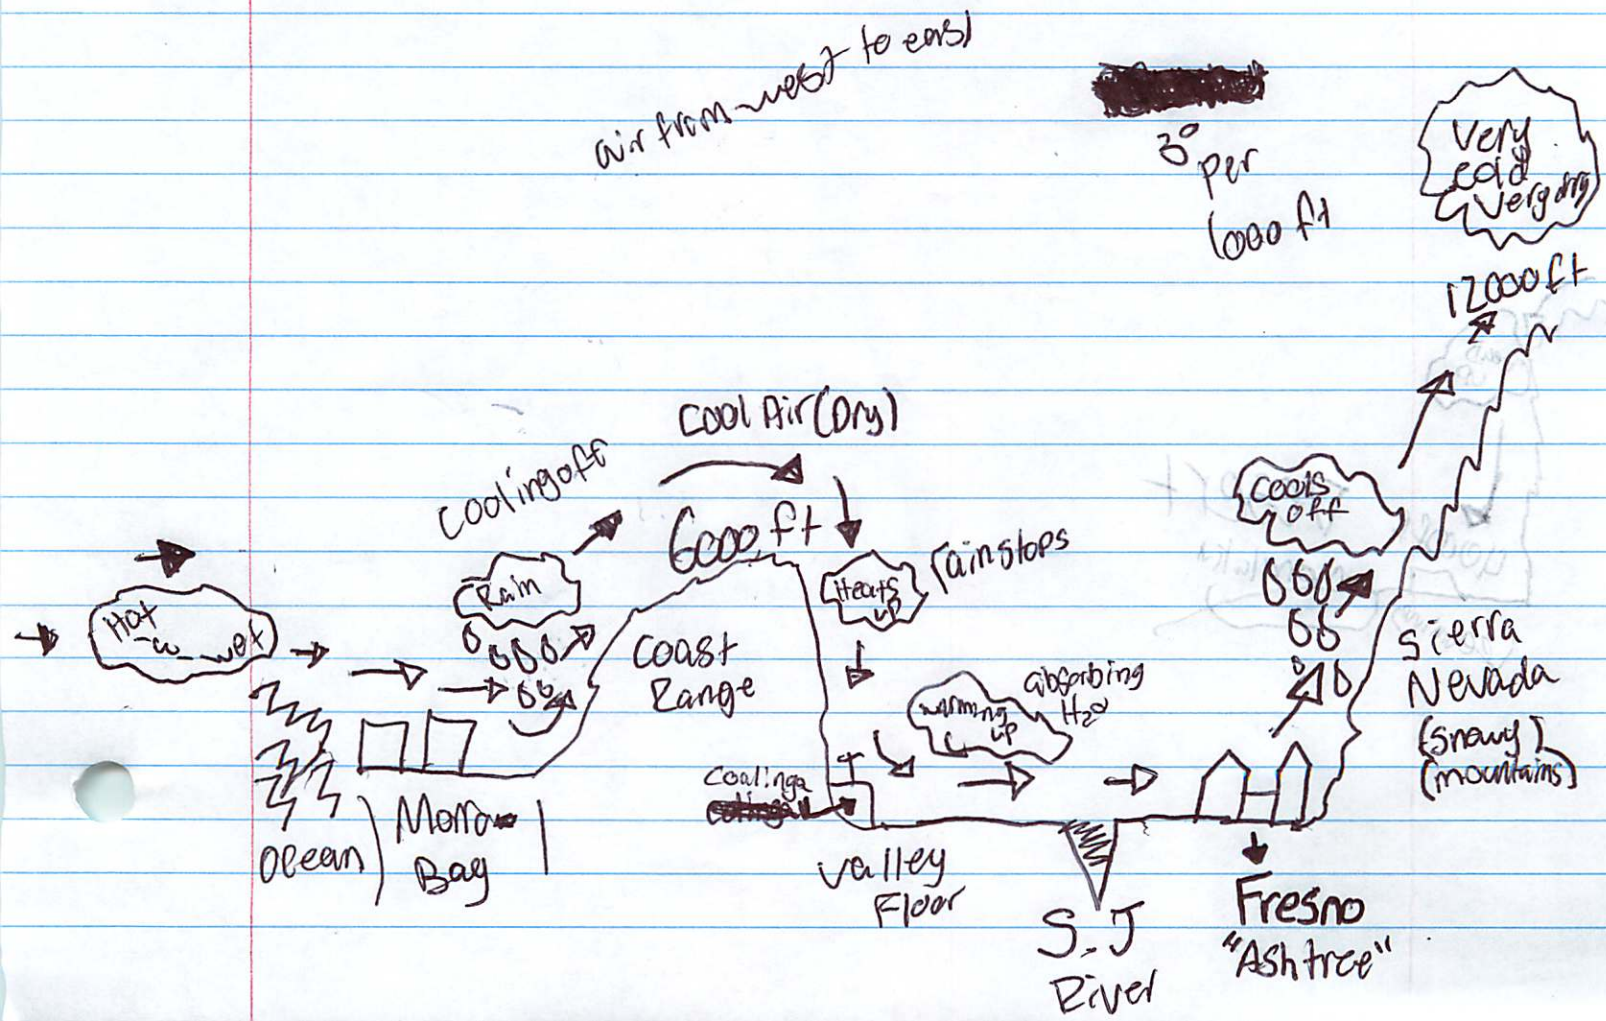 air from west to east
3°
per
1000 ft
Very
cold
Very dry
12000ft
Cool Air (Dry)
cooling off
6000 ft
Rain
Heats
up
rain stops
Cools
off
Hot
wet
Coast
Range
warming
up
absorbing
H2O
Sierra
Nevada
(snowy)
(mountains)
Coalinga
Ocean
Morro
Bay
Valley
Floor
S.J
River
Fresno
"Ash tree"